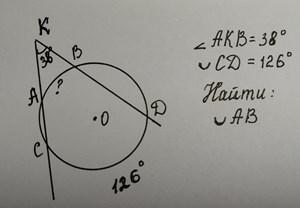 K
38°
B
A
?
O
D
C
126°
∠ AKB = 38°
◡ CD = 126°
Найти:
◡ AB